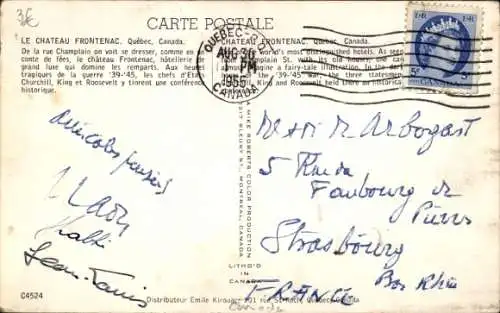 3€
CARTE POSTALE
LE CHATEAU FRONTENAC, Québec, Canada.
De la rue Champlain on voit se dresser, comme en
conte de fées, le château Frontenac, hôtellerie de
grand luxe qui domine les remparts. Aux heures
tragiques de la guerre '39-'45, les chefs d'Etat
Churchill, King et Roosevelt y tinrent une conférence
historique.
FRONTENAC, Quebec, Canada.
world's most distinguished hotels. As seen
from Champlain St. with its old houses, one can
imagine a fairy-tale illustration. In the dark
of the '39-'45 war, the three statesmen,
King and Roosevelt held there a historical
QUEBEC
AUG
PM
CANADA
CANADA
5
MIKE ROBERTS COLOR PRODUCTION
FLEURY ST., MONTREAL, CANADA
amicales pensées
Jean-Louis
Arbogast
5 Rue du
Faubourg de
Pierre
Strasbourg
Bas Rhin
FRANCE
LITHO'D
IN
CANADA
C4524
Distributeur Emile Kirouac, 101 rue St-Québec, Canada
Canada